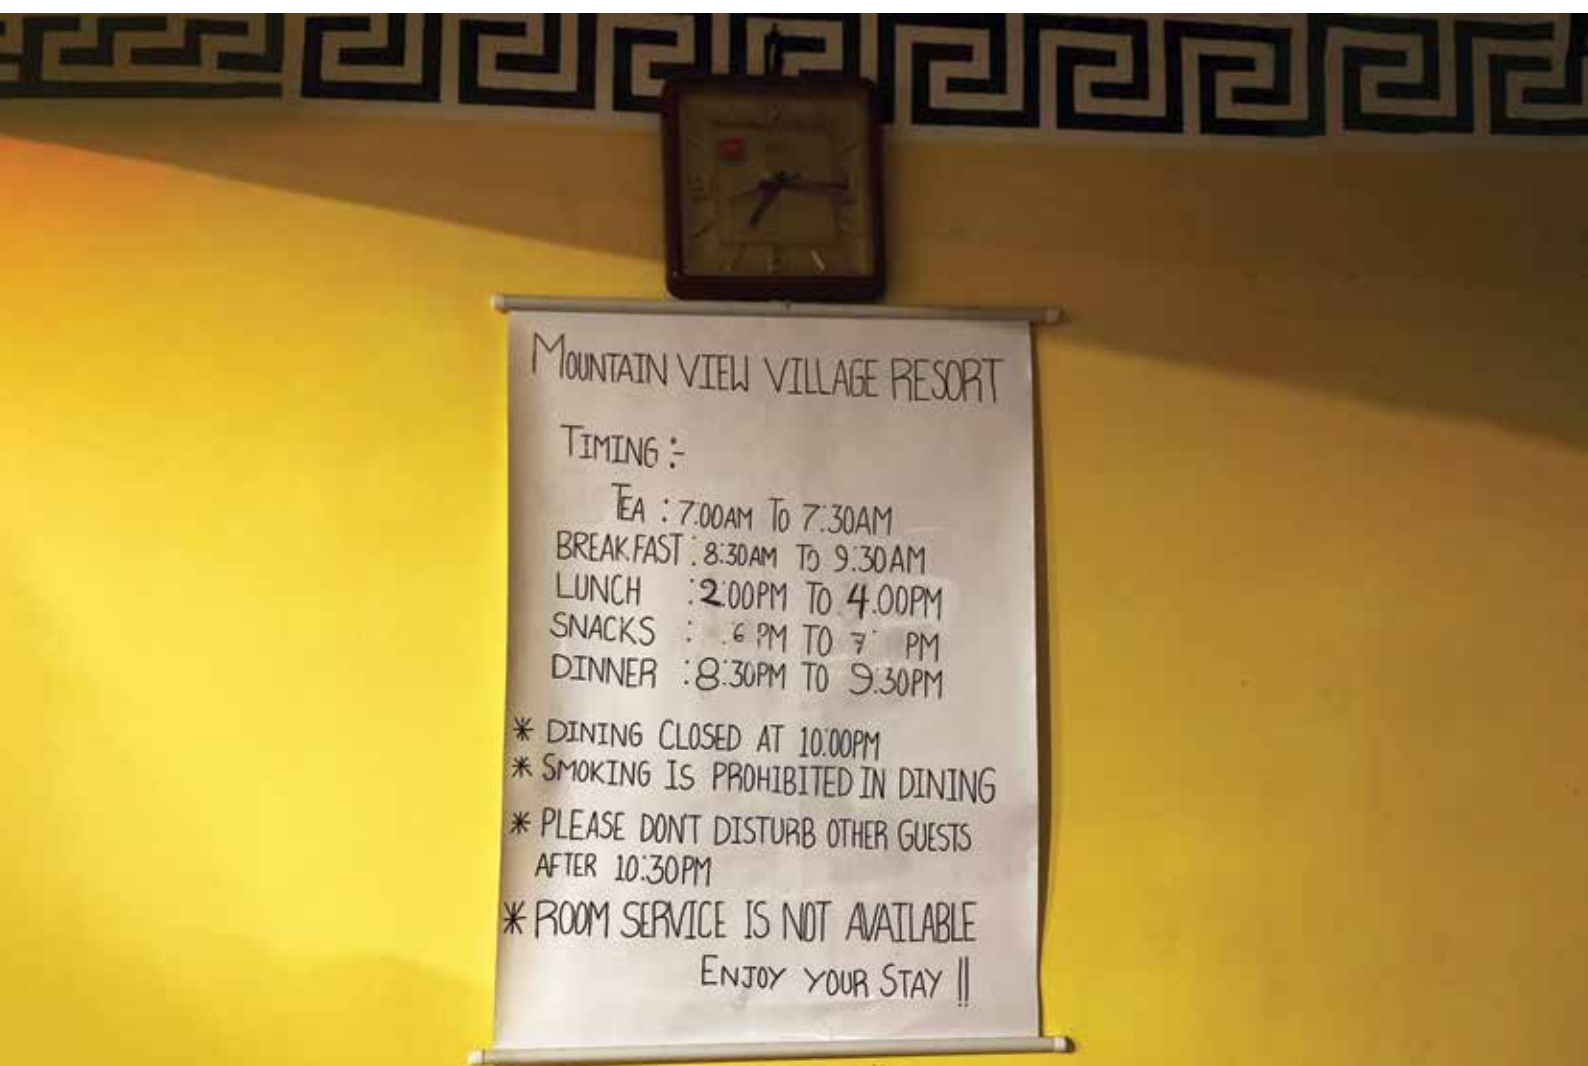 MOUNTAIN VIEW VILLAGE RESORT
TIMING :-
TEA : 7.00AM TO 7:30AM
BREAKFAST : 8:30AM TO 9:30AM
LUNCH : 2:00PM TO 4.00PM
SNACKS : 6 PM TO 7 PM
DINNER : 8:30PM TO 9:30PM
* DINING CLOSED AT 10:00PM
* SMOKING IS PROHIBITED IN DINING
* PLEASE DONT DISTURB OTHER GUESTS
AFTER 10:30PM
* ROOM SERVICE IS NOT AVAILABLE
ENJOY YOUR STAY !!